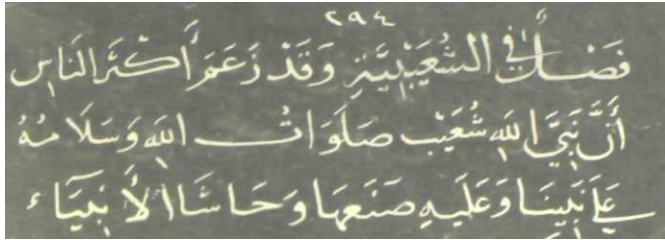 ٢٩٤
فَصْلٌ فِي الشُّعَيْبِيَّةِ وَقَدْ زَعَمَ أَكْثَرُ النَّاسِ
أَنَّ نَبِيَّ اللهِ شُعَيْبَ صَلَوَاتُ اللهِ وَسَلَامُهُ
عَلَى نَبِينَا وَعَلَيْهِ صَنَعَهَا وَحَاشَا الأَنْبِيَاء